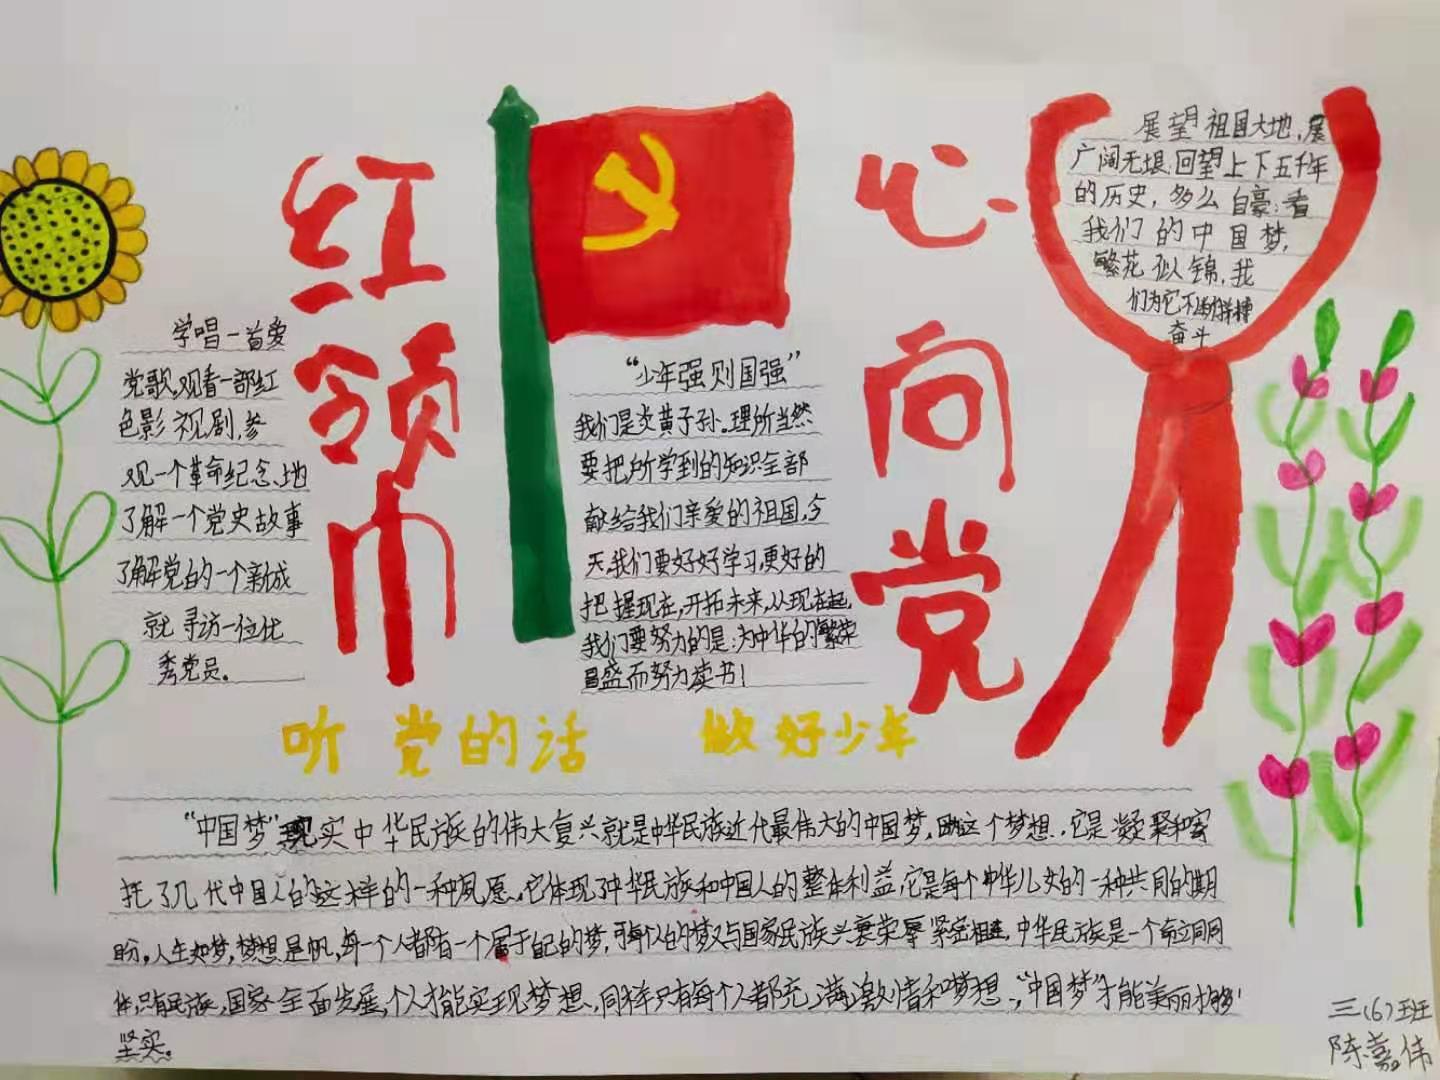 红领巾
心向党
学唱一首爱
党歌,观看一部红
色影视剧,参
观一个革命纪念地
了解一个党史故事
了解党的一个新成
就寻访一位优
秀党员。
“少年强则国强”
我们是炎黄子孙。理所当然
要把所学到的知识全部
献给我们亲爱的祖国,今
天,我们要好好学习,更好的
把握现在,开拓未来,从现在起,
我们要努力的是:为中华的繁荣
昌盛而努力读书!
展望祖国大地,
广阔无垠.回望上下五千年
的历史,多么自豪;看
我们的中国梦,
繁花似锦,我
们为它不断拼搏
奋斗
听党的话 做好少年
“中国梦”现实中华民族的伟大复兴就是中华民族近代最伟大的中国梦,这个梦想,它是凝聚和寄
托了几代中国人的这样的一种夙愿,它体现了中华民族和中国人的整体利益,它是每个中华儿女的一种共同的期
盼。人生如梦,梦想是帆,每一个人都有一个属于自己的梦,可每个人的梦又与国家民族兴衰荣辱紧密相连,中华民族是一个命运共同
体,只有民族,国家全面发展,个人才能实现梦想,同样只有每个人都充满激情和梦想,“中国梦”才能美丽
坚实。
三(6)班
陈嘉伟